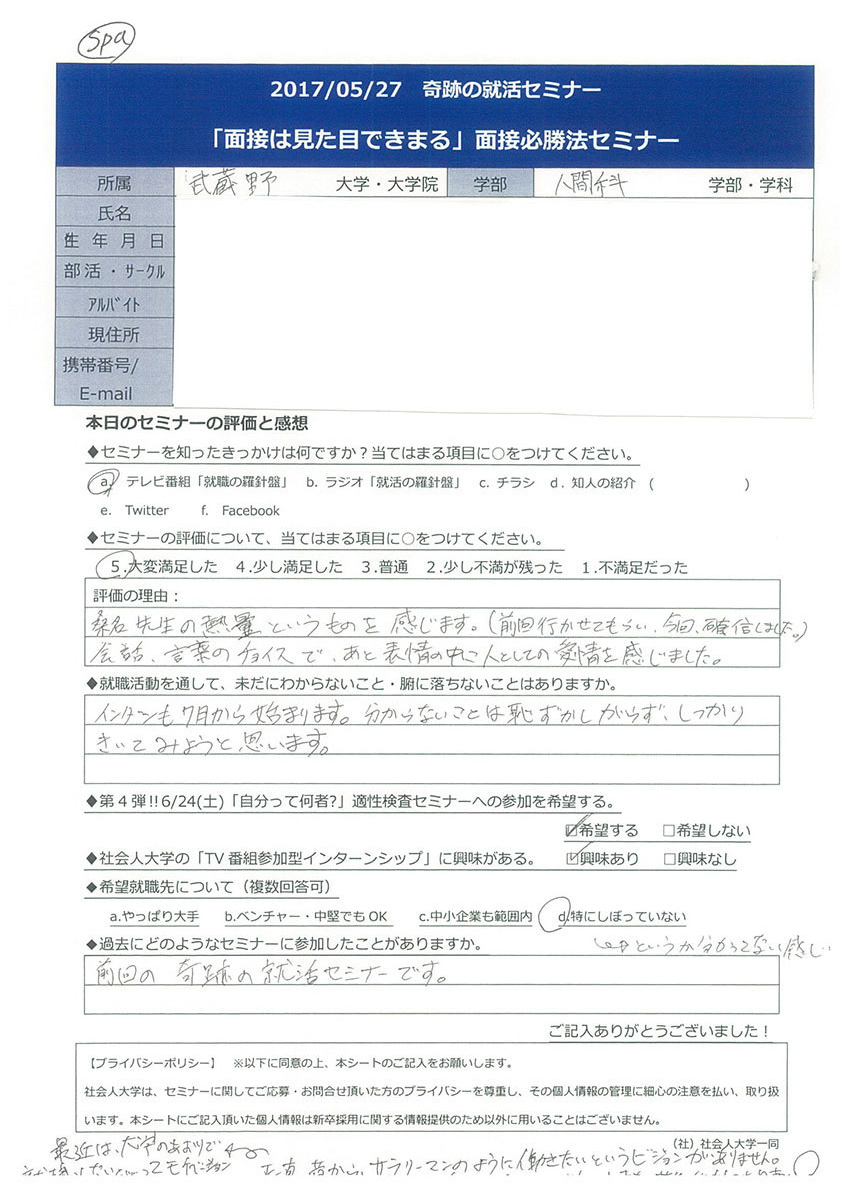 spa
2017/05/27 奇跡の就活セミナー
「面接は見た目できまる」面接必勝法セミナー
所属 武蔵野 大学・大学院 学部 人間科 学部・学科
氏名
生年月日
部活・サークル
アルバイト
現住所
携帯番号/
E-mail
本日のセミナーの評価と感想
◆セミナーを知ったきっかけは何ですか？当てはまる項目に○をつけてください。
a. テレビ番組「就職の羅針盤」 b. ラジオ「就活の羅針盤」 c. チラシ d. 知人の紹介 （ ）
e. Twitter f. Facebook
◆セミナーの評価について、当てはまる項目に○をつけてください。
5.大変満足した 4.少し満足した 3.普通 2.少し不満が残った 1.不満足だった
評価の理由：
桑名先生の熱量というものを感じます。(前回行かせてもらい、今回、確信しました。)
会話、言葉のチョイスで、あと表情の中に人としての愛情を感じました。
◆就職活動を通して、未だにわからないこと・腑に落ちないことはありますか。
インターンも7月から始まります。分からないことは恥ずかしがらず、しっかり
きいてみようと思います。
◆第４弾!!6/24(土)「自分って何者?」適性検査セミナーへの参加を希望する。
☑希望する □希望しない
◆社会人大学の「TV番組参加型インターンシップ」に興味がある。 ☑興味あり □興味なし
◆希望就職先について（複数回答可）
a.やっぱり大手 b.ベンチャー・中堅でもOK c.中小企業も範囲内 d.特にしぼっていない
◆過去にどのようなセミナーに参加したことがありますか。
というか分かってない感じ
前回の奇跡の就活セミナーです。
ご記入ありがとうございました！
【プライバシーポリシー】 ※以下に同意の上、本シートのご記入をお願いします。
社会人大学は、セミナーに関してご応募・お問合せ頂いた方のプライバシーを尊重し、その個人情報の管理に細心の注意を払い、取り扱
います。本シートにご記入頂いた個人情報は新卒採用に関する情報提供のため以外に用いることはございません。
（社）社会人大学一同
最近は、大学のあおりで
モチベーション
正直昔からサラリーマンのように働きたいというビジョンがありません。